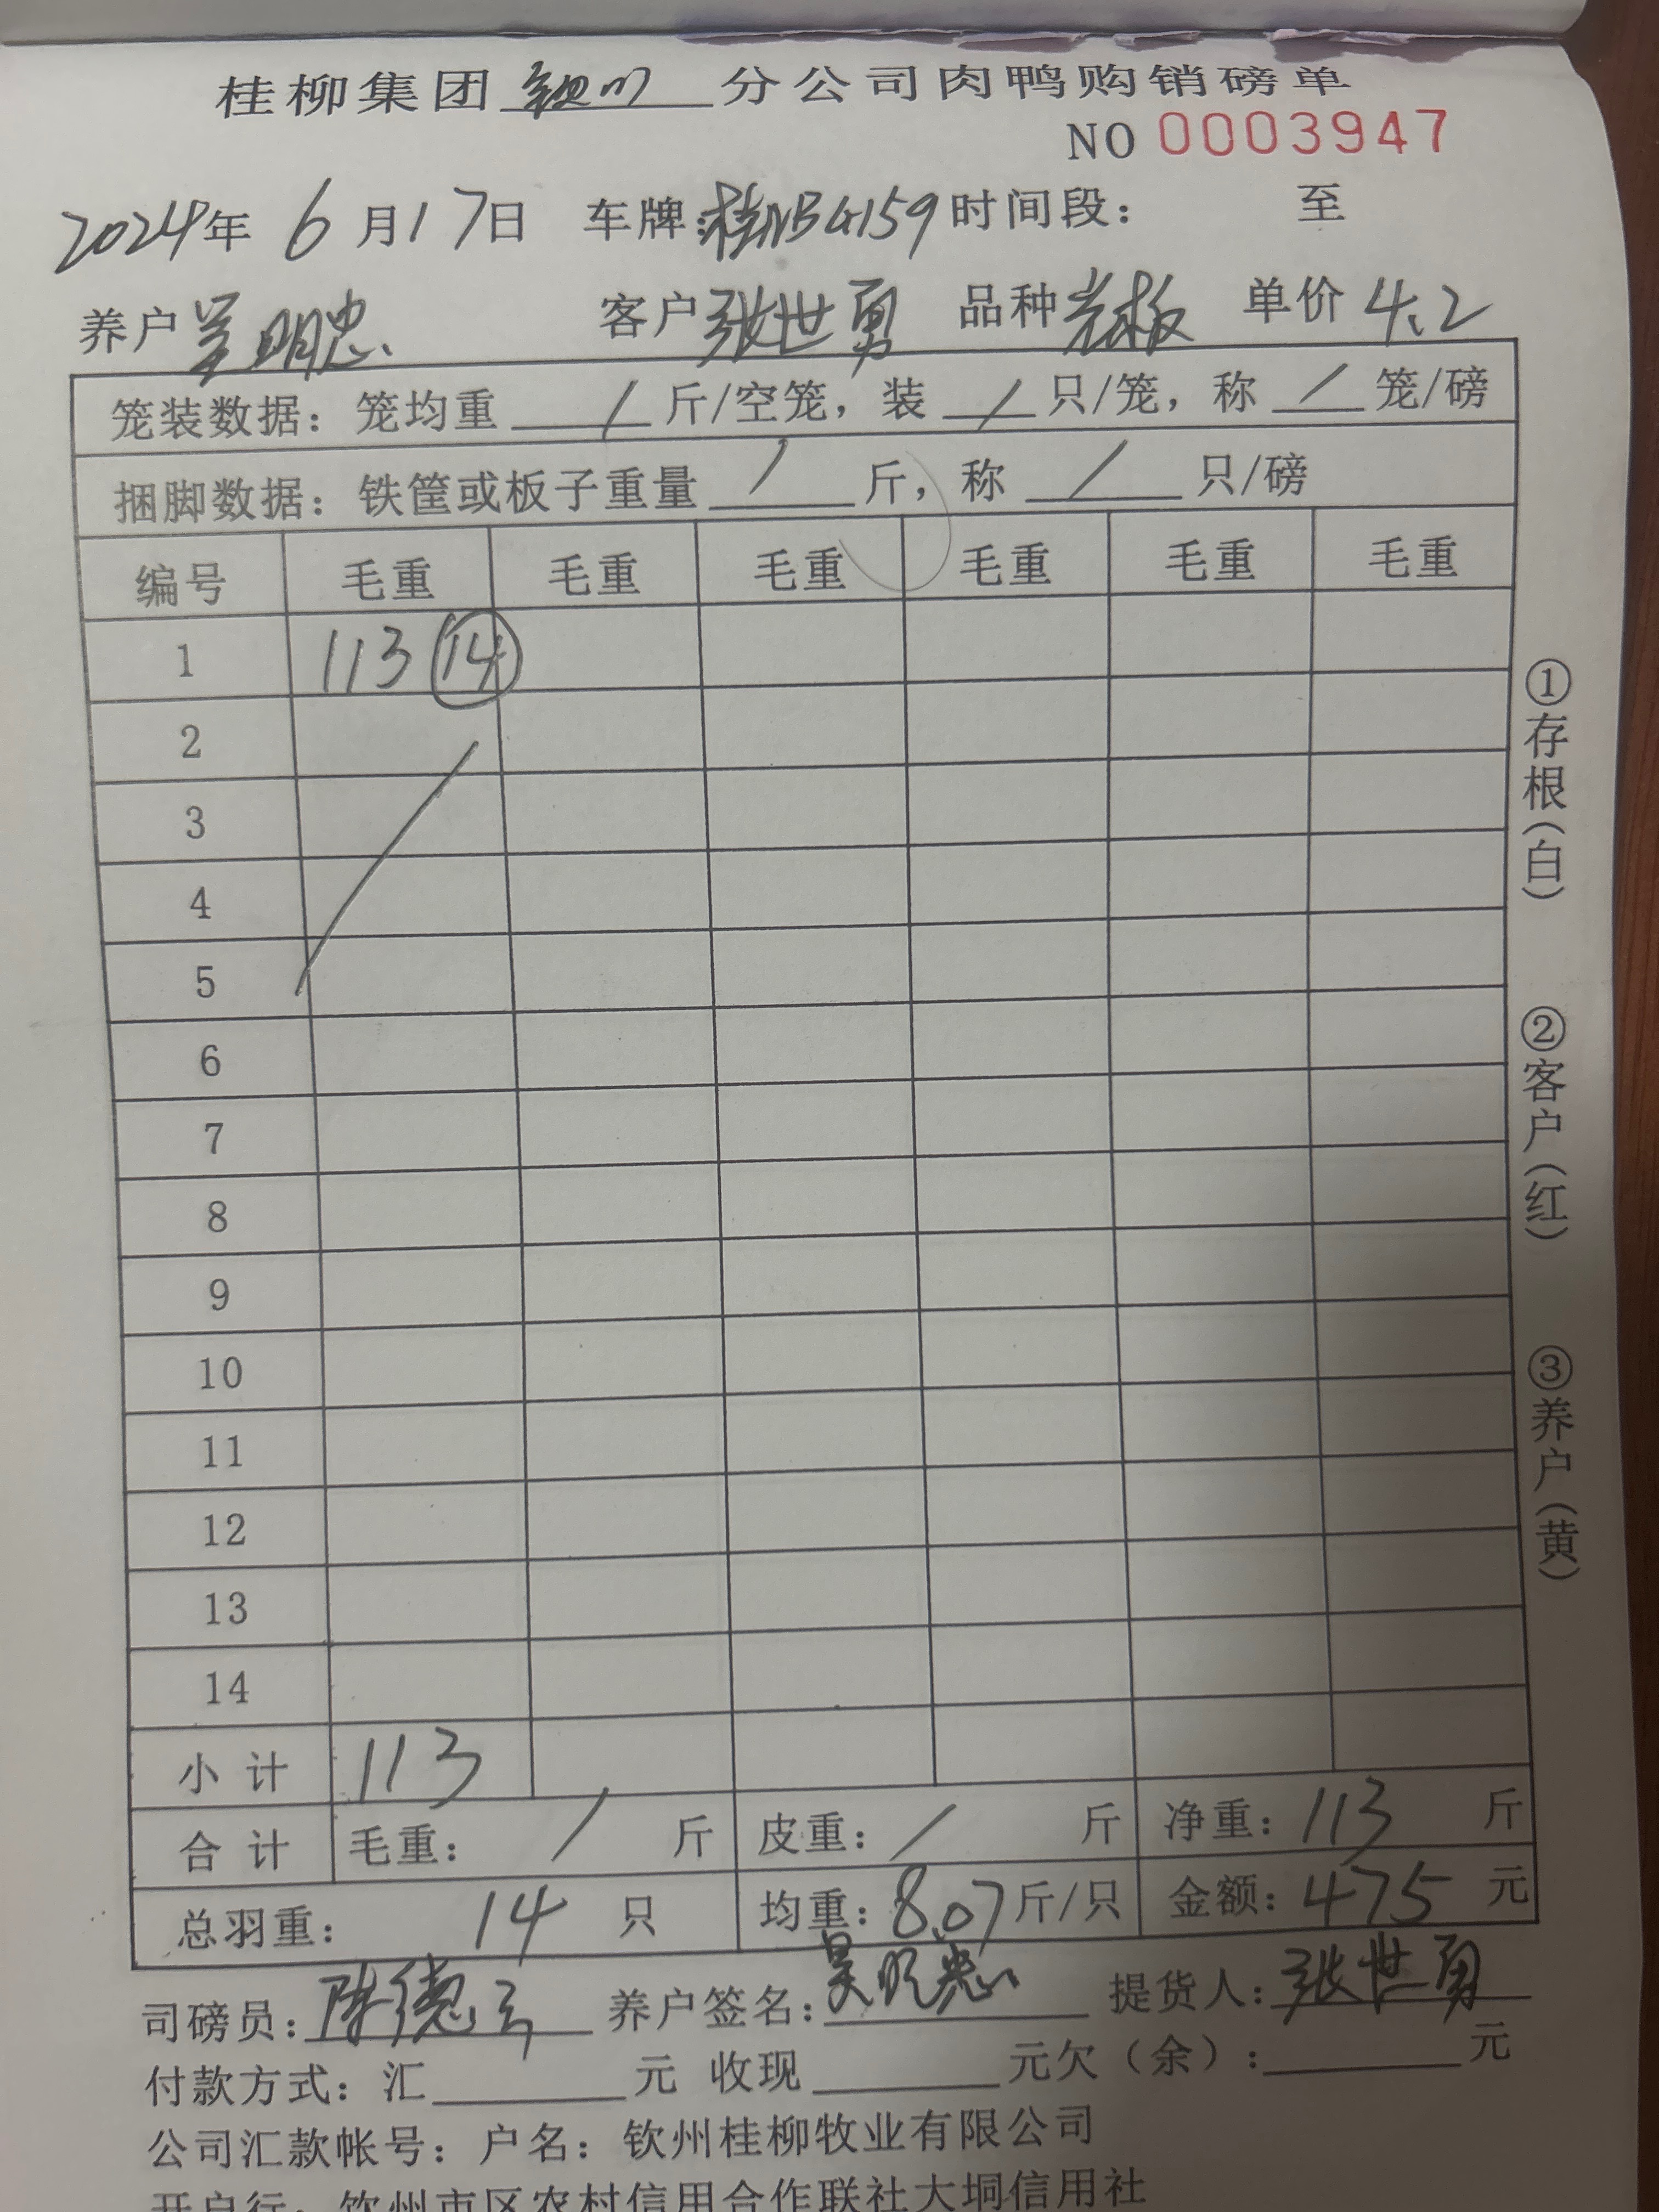 桂柳集团钦州分公司肉鸭购销磅单
NO 0003947
2024年 6月17日 车牌:桂NB4159 时间段: 至
养户 吴明忠 客户 张世勇 品种 岩板 单价 4.2
笼装数据: 笼均重 / 斤/空笼, 装 / 只/笼, 称 / 笼/磅
捆脚数据: 铁筐或板子重量 / 斤, 称 / 只/磅
编号 毛重 毛重 毛重 毛重 毛重 毛重
1 113 14
2
3
4
5
6
7
8
9
10
11
12
13
14
小计 113
合计 毛重: / 斤 皮重: / 斤 净重: 113 斤
总羽重: 14 只 均重: 8.07 斤/只 金额: 475 元
司磅员: 陈德云 养户签名: 吴明忠 提货人: 张世勇
付款方式: 汇 元 收现 元欠(余): 元
公司汇款帐号: 户名: 钦州桂柳牧业有限公司
开户行: 钦州市区农村信用合作联社大垌信用社
①存根(白)
②客户(红)
③养户(黄)